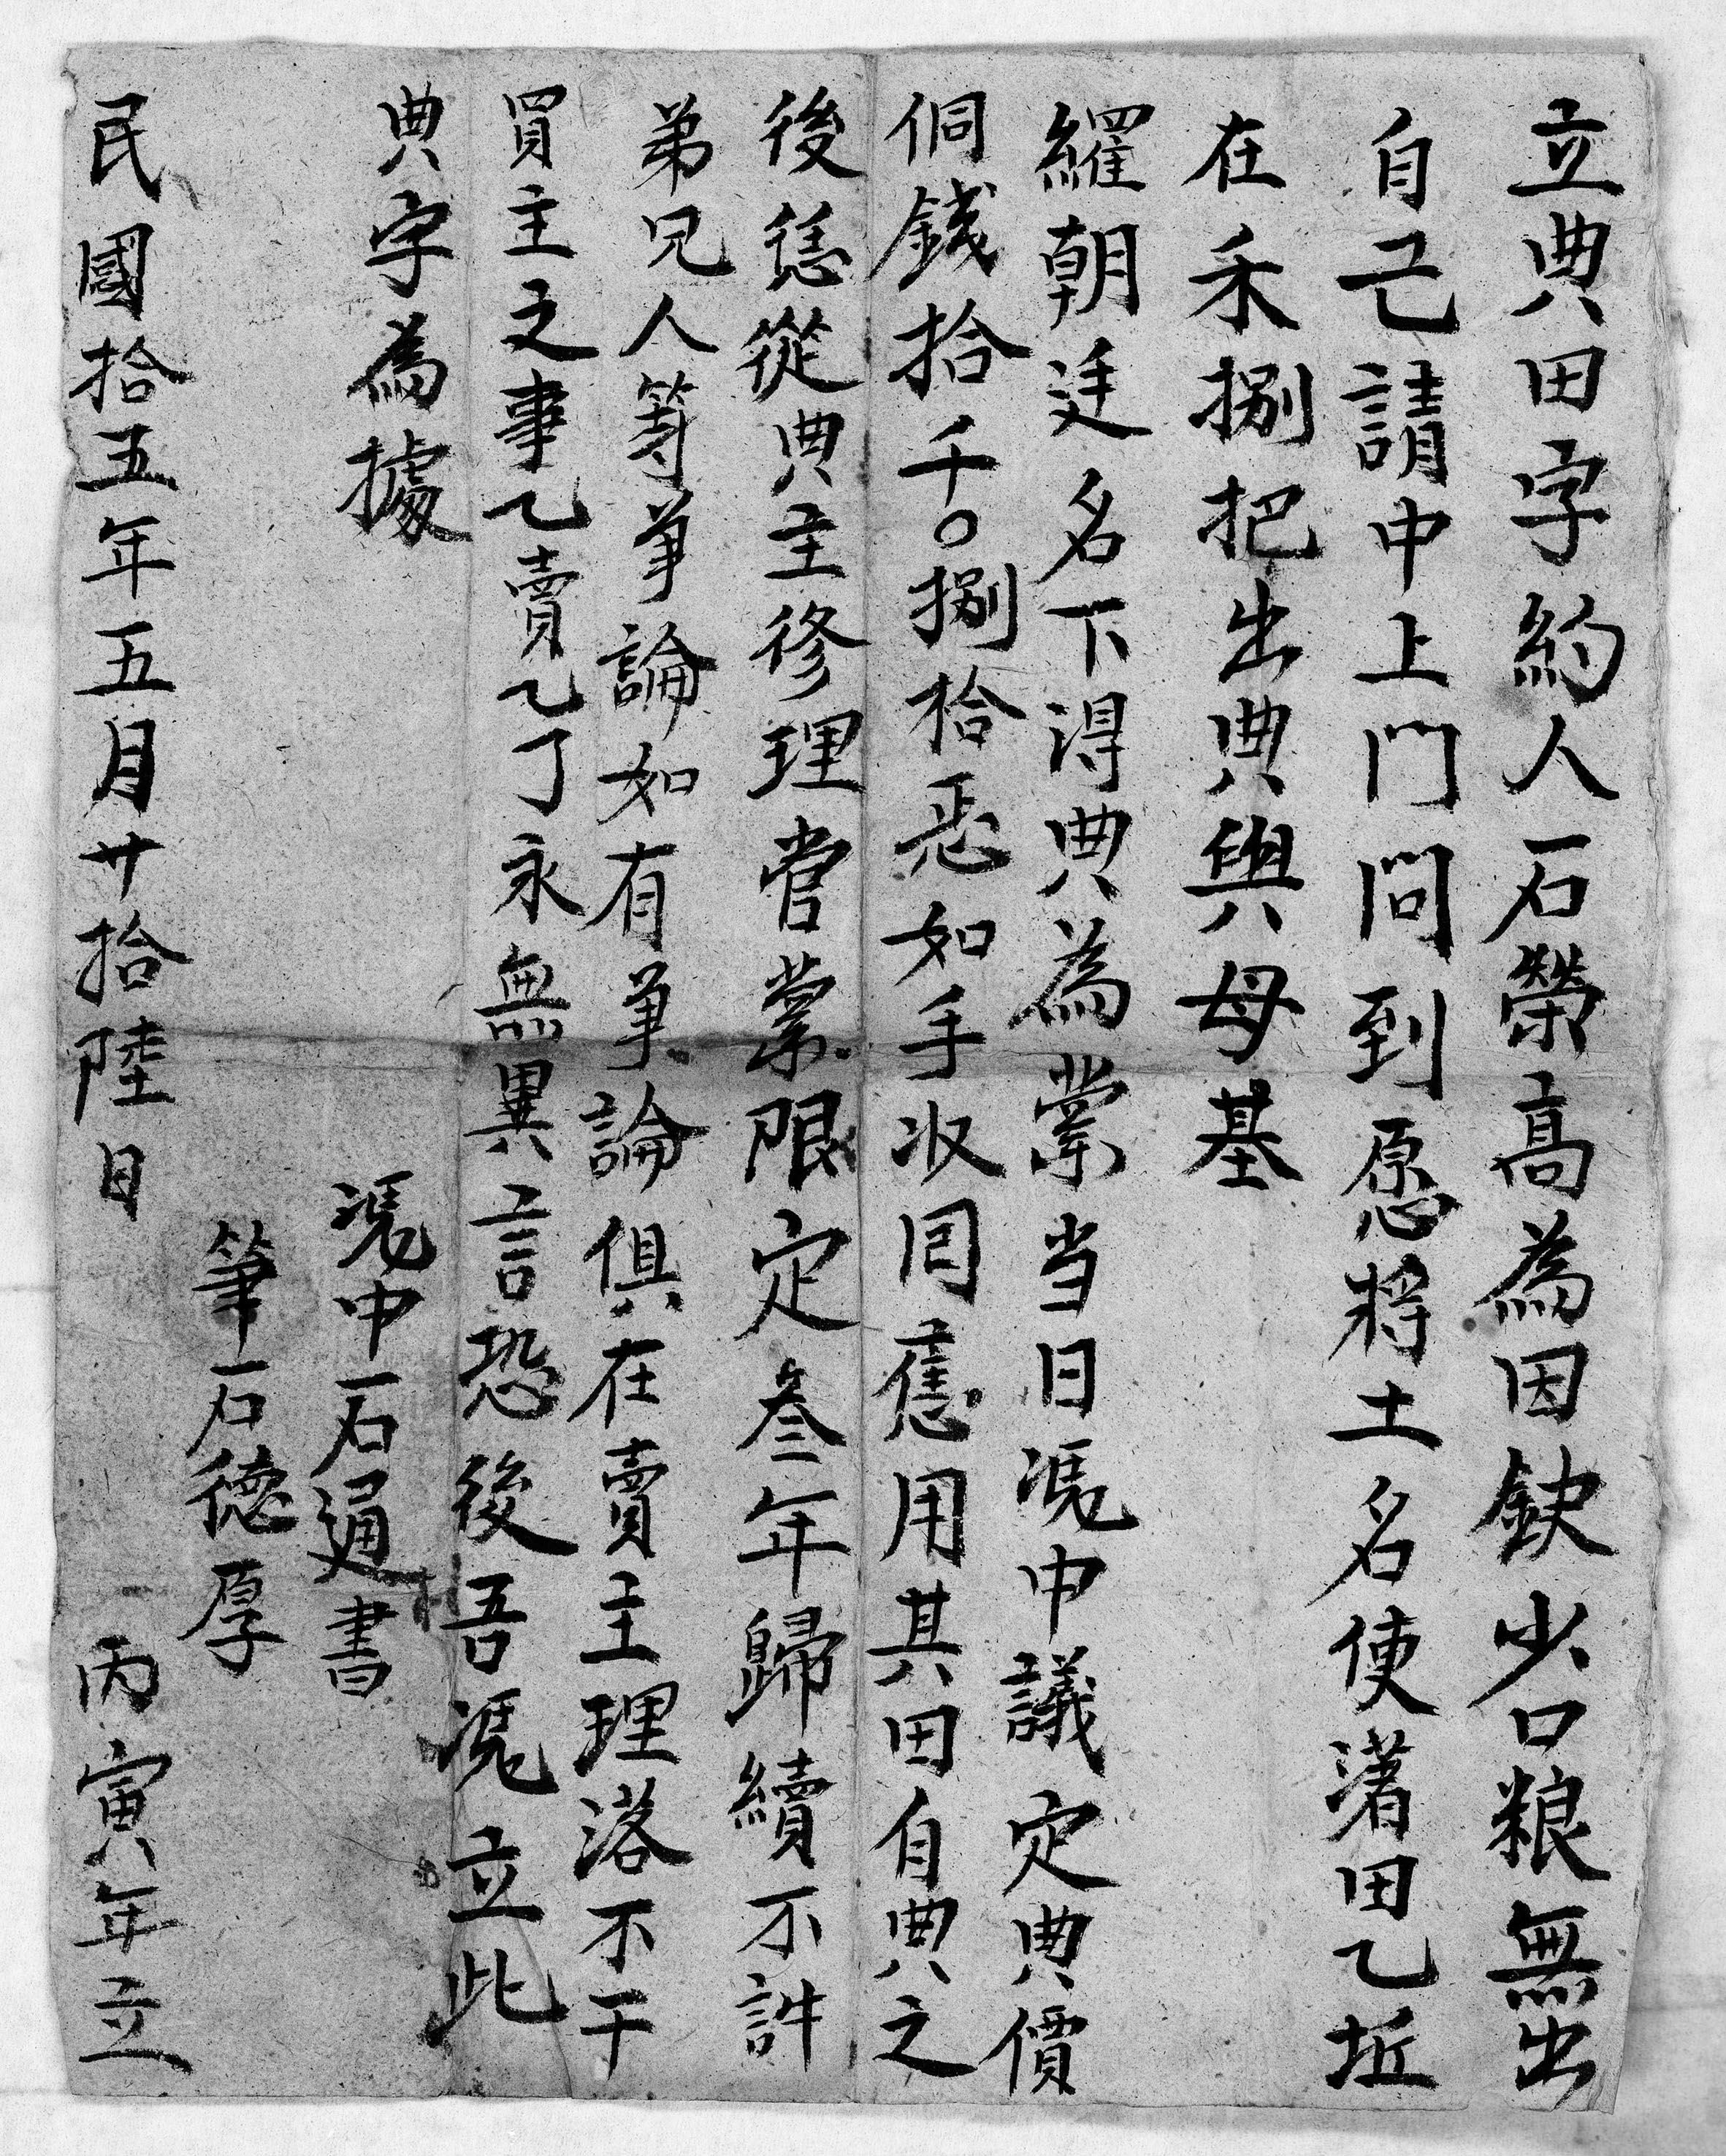 立典田字約人石榮高為因缺少口粮無出
自己請中上門問到愿將土名使潴田乙坵
在禾捌把出典與母基
羅朝廷名下得典為業当日凴中議定典價
侗錢拾千〇捌拾如手收囘應用其田自典之
後恁從典主修理管業限定叁年歸續不許
弟兄人等爭論如有爭論俱在賣主理落不干
買主之事乙賣乙了永無異言恐後吾凴立此
典字為據
凴中石通書
筆石德厚
民國拾五年五月廿拾陸日 丙寅年立